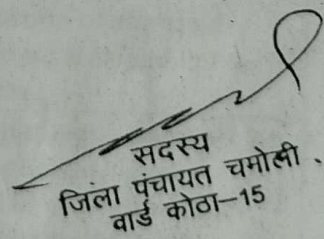 सदस्य
जिला पंचायत चमोली .
वार्ड कोठा-15